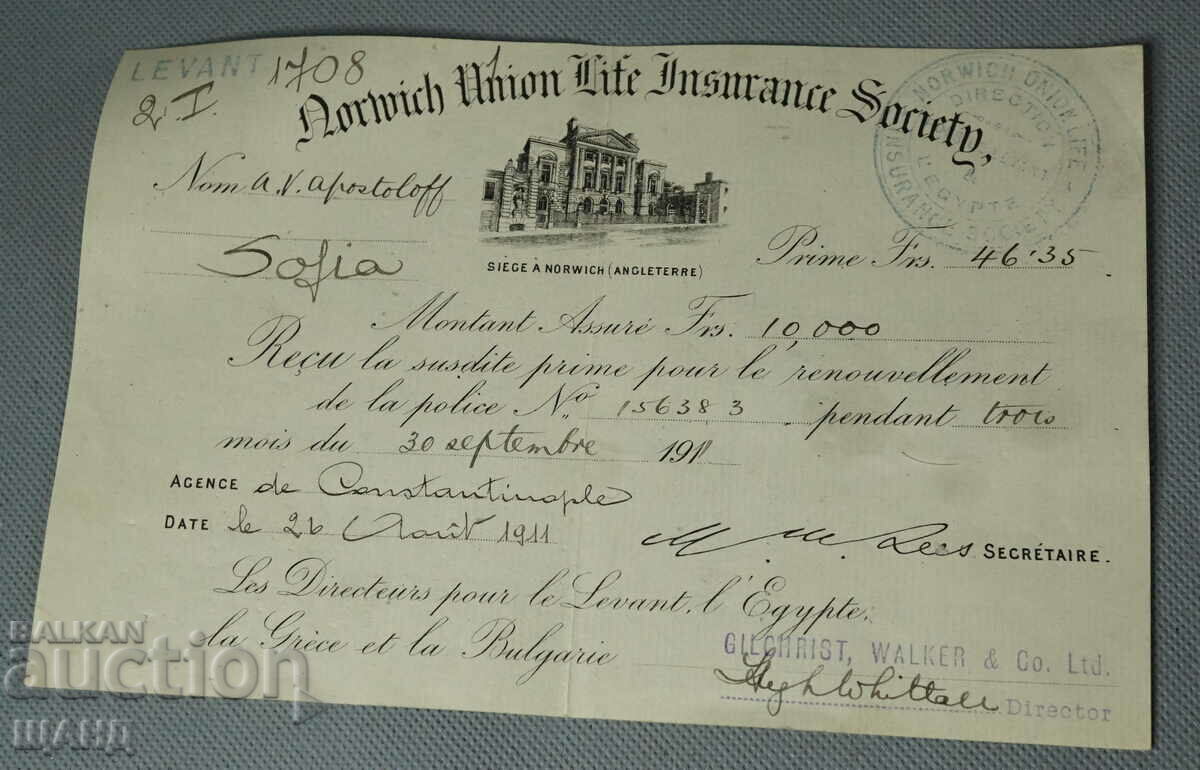 LEVANT 1708
2 I.
Norwich Union Life Insurance Society,
NORWICH UNION LIFE INSURANCE SOCIETY
DIRECTION
EGYPTE
Nom A. V. Apostoloff
Sofia
SIEGE A NORWICH (ANGLETERRE)
Prime Frs. 46.35
Montant Assuré Frs. 10,000
Reçu la susdite prime pour le renouvellement
de la police No. 156383 pendant trois
mois du 30 septembre 1911
AGENCE de Constantinople
DATE le 26 Août 1911
SECRÉTAIRE.
Les Directeurs pour le Levant, l'Egypte,
la Grèce et la Bulgarie
GILCHRIST, WALKER & Co. Ltd.
Hugh Whittall Director
BALKAN
auction
ШАНД